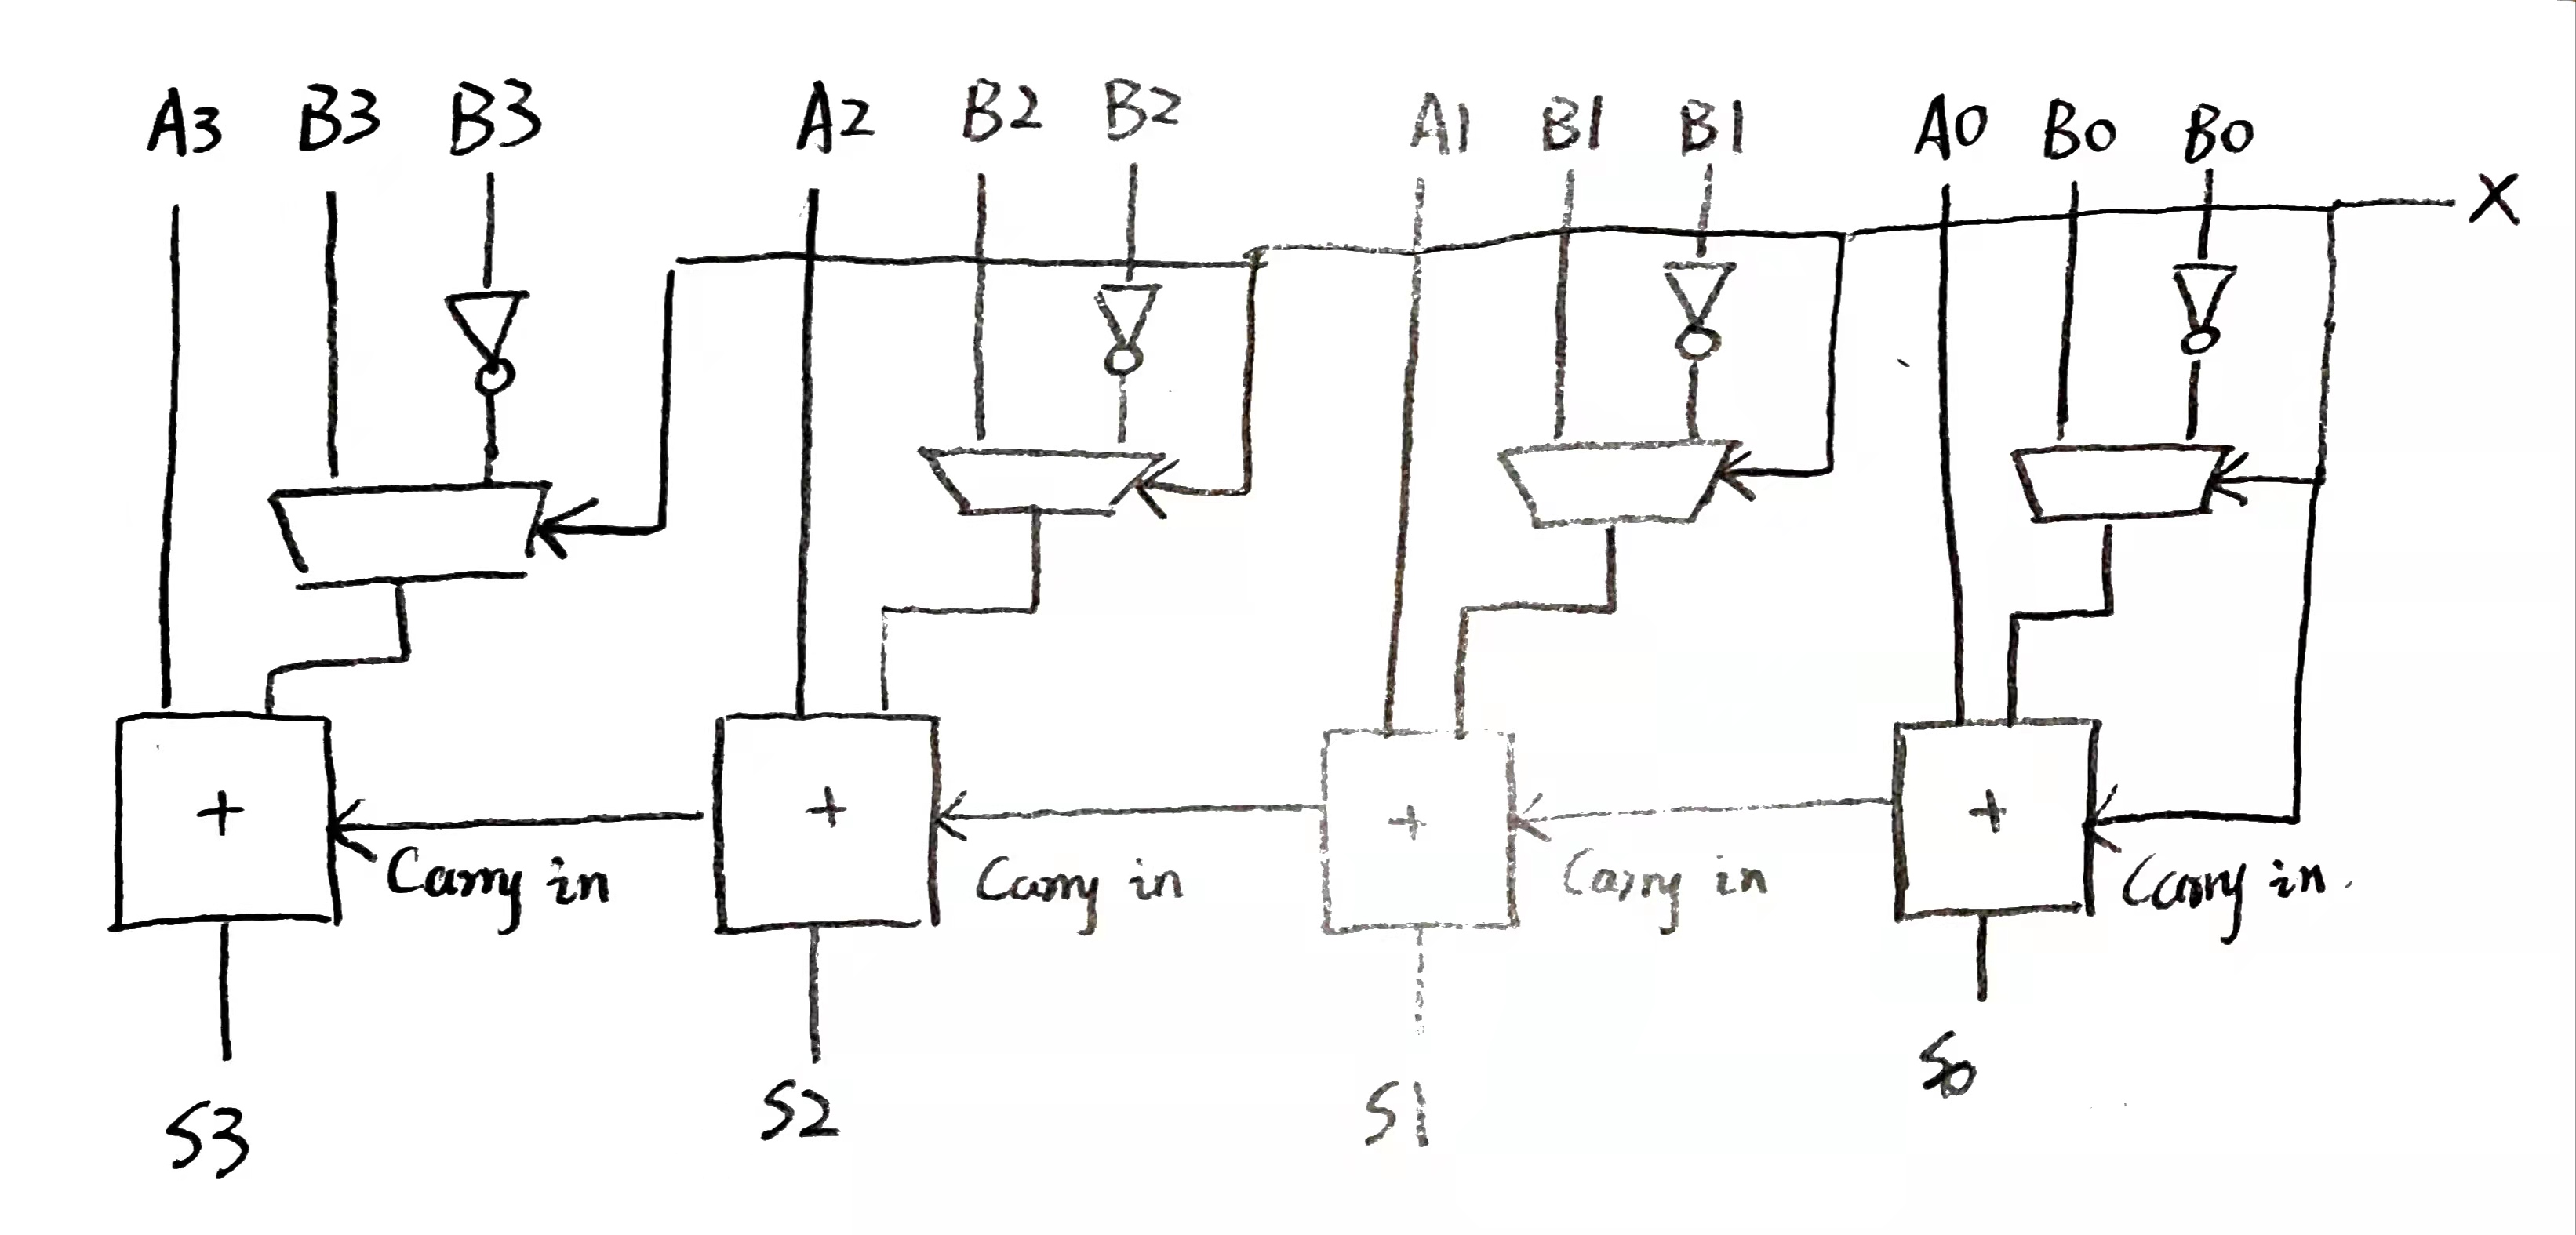 A3 B3 B3 A2 B2 B2 A1 B1 B1 A0 B0 B0
X
+ + + +
Carry in Carry in Carry in Carry in.
S3 S2 S1 S0